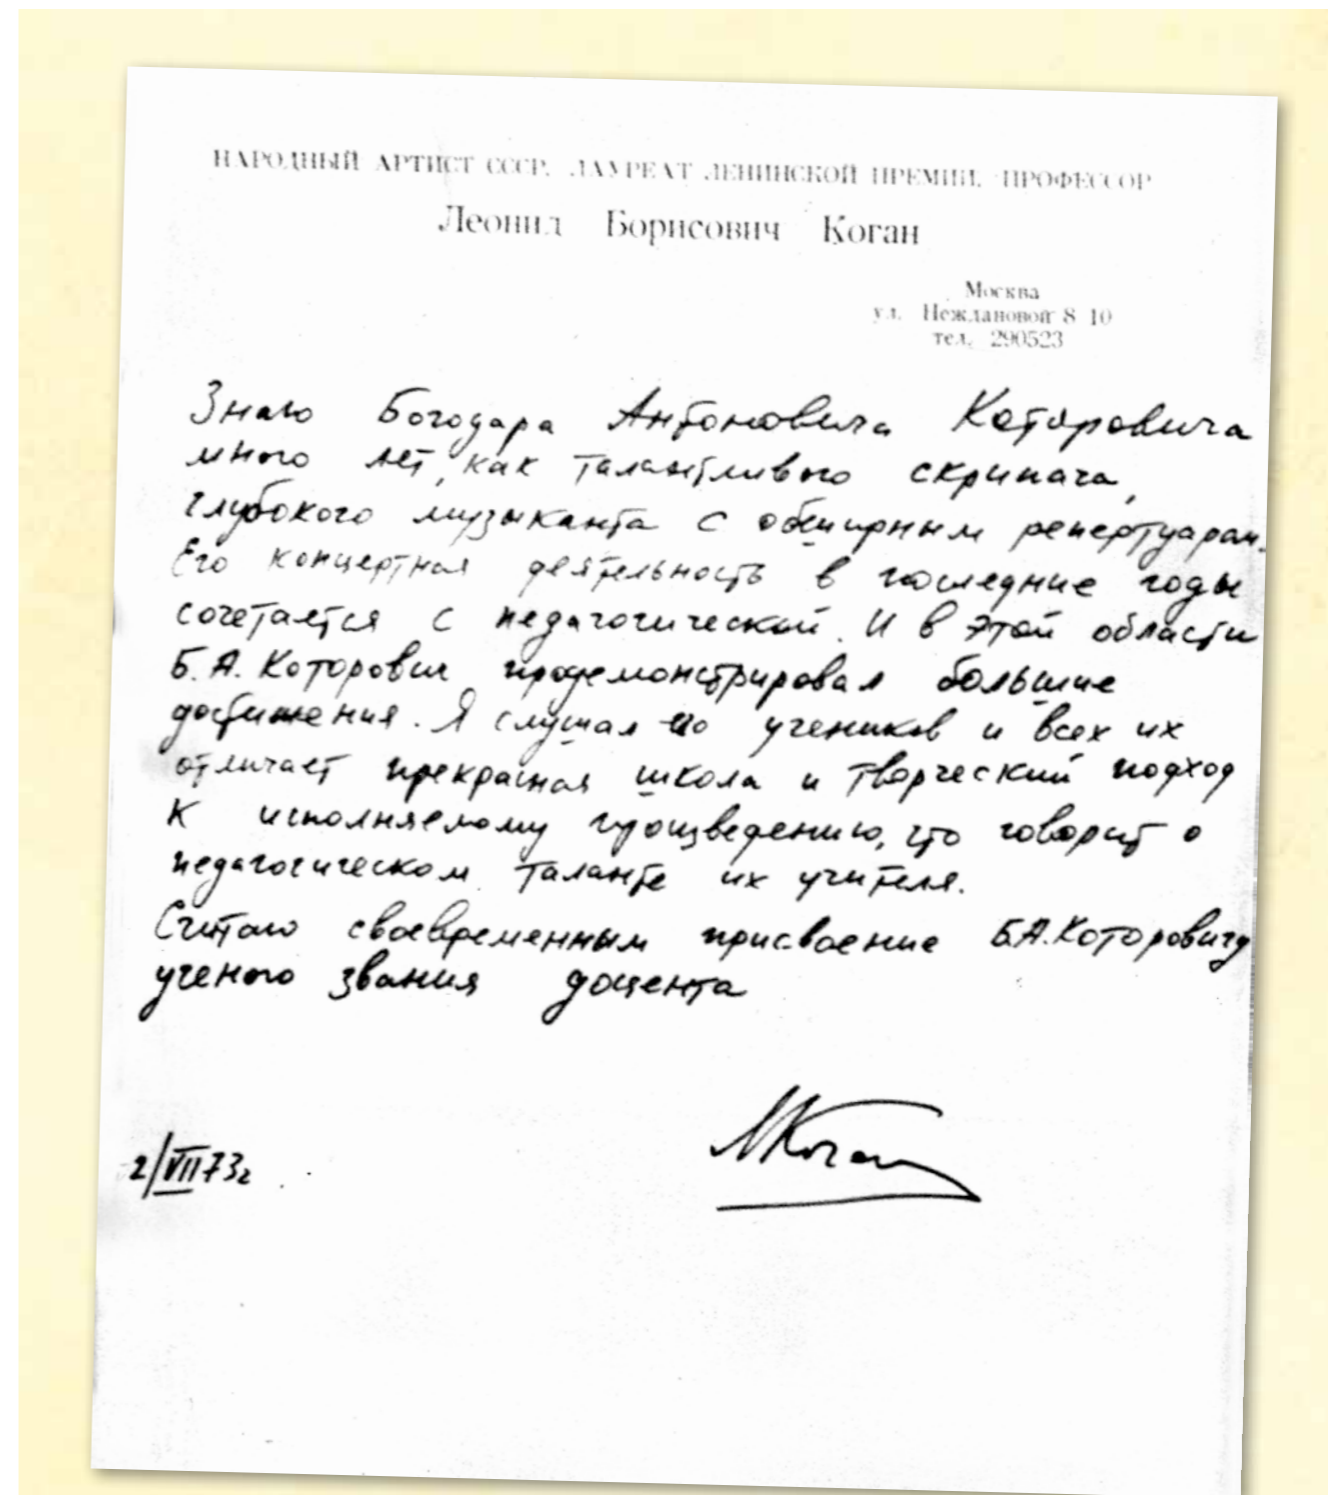 НАРОДНЫЙ АРТИСТ СССР, ЛАУРЕАТ ЛЕНИНСКОЙ ПРЕМИИ, ПРОФЕССОР
Леонид Борисович Коган
Москва
ул. Неждановой 8 10
тел. 290523
Знаю Богодара Антоновича Которовича
много лет, как талантливого скрипача,
глубокого музыканта с обширным репертуаром.
Его концертная деятельность в последние годы
сочетается с педагогической. И в этой области
Б.А. Которович продемонстрировал большие
достижения. Я слушал его учеников и всех их
отличает прекрасная школа и творческий подход
к исполняемому произведению, что говорит о
педагогическом таланте их учителя.
Считаю своевременным присвоение Б.А. Которовичу
ученого звания доцента
ЛКоган
2/VII 73г